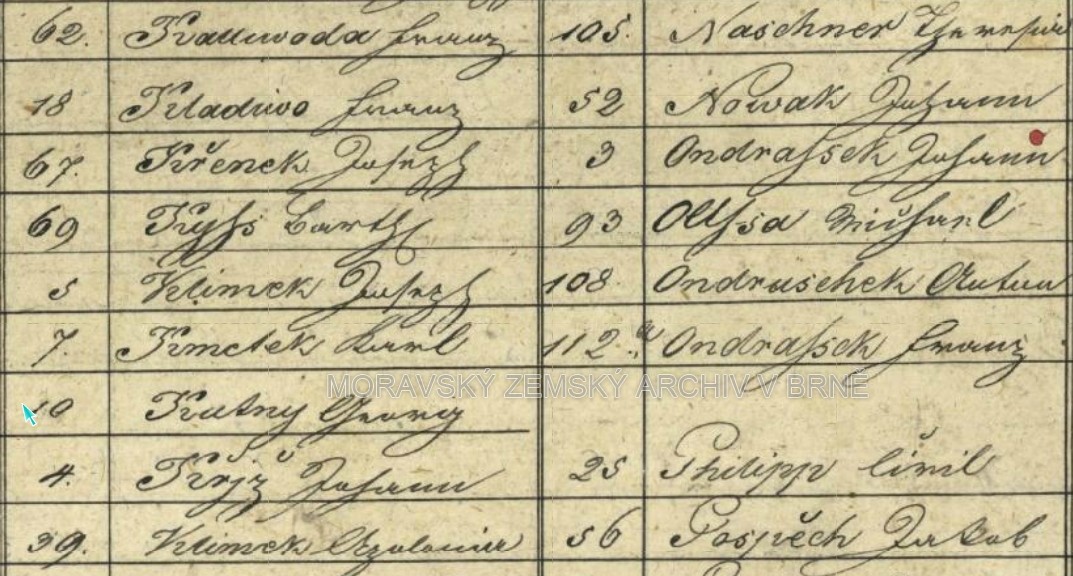 62. Kallwoda Franz
18 Kladiwo Franz
67. Křenek Joseph
69 Kyss Barth
5 Klimek Joseph
7. Kmetek Karl
10 Kutny Georg
4. Křjž Johann
39. Klimek Apolonia
105. Naschner Theresia
52 Nowak Johann
3 Ondrassek Johann
93 Ollssa Michael
108. Ondruschek Anton
112. a Ondrassek Franz
MORAVSKÝ ZEMSKÝ ARCHIV V BRNĚ
25 Philipp Ciril
56 Pospěch Jakob